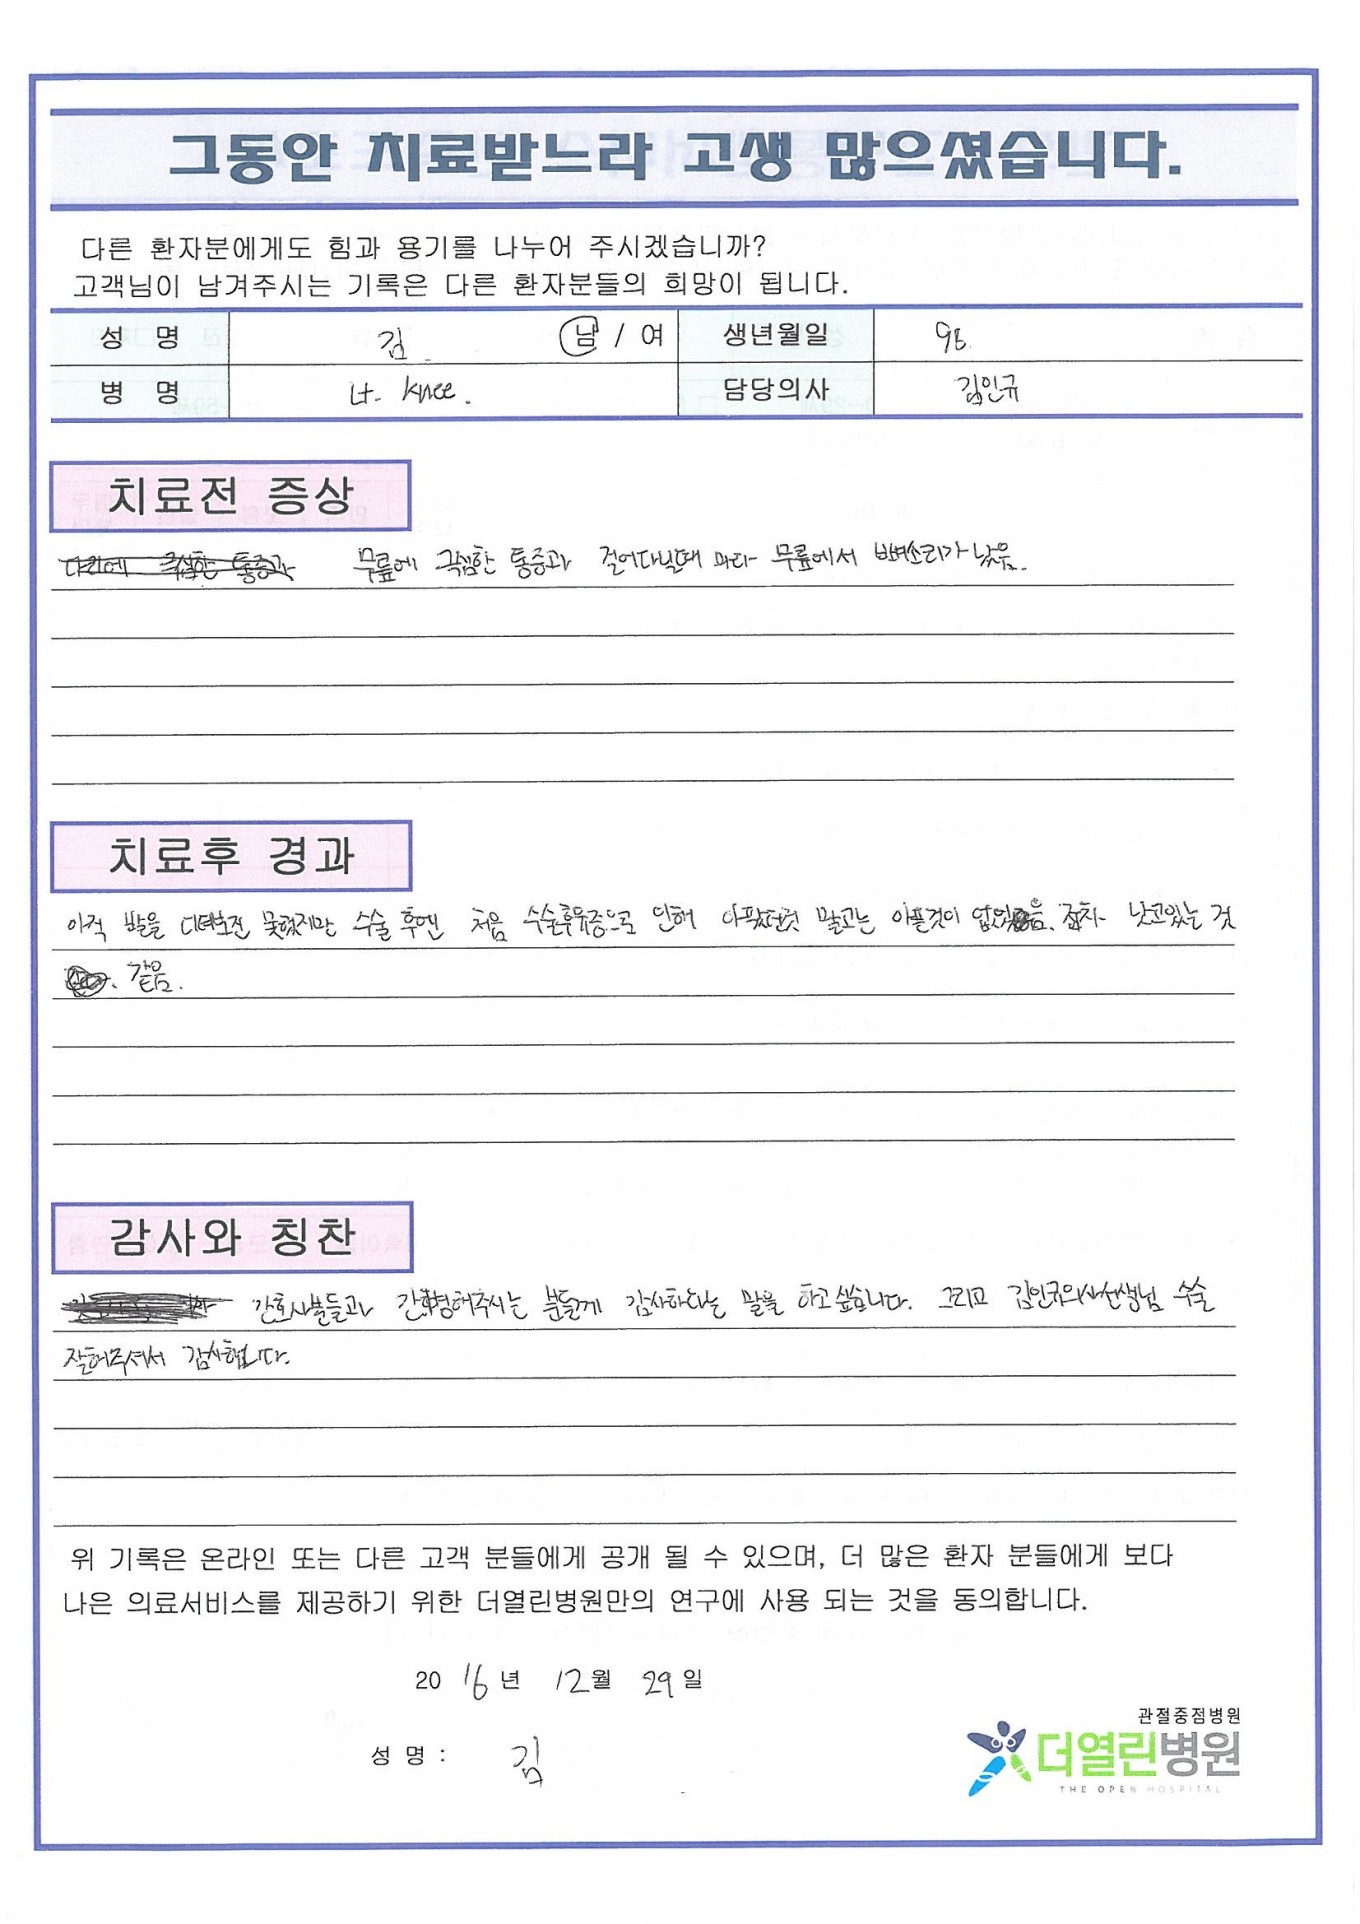 그동안 치료받느라 고생 많으셨습니다.
다른 환자분에게도 힘과 용기를 나누어 주시겠습니까?
고객님이 남겨주시는 기록은 다른 환자분들의 희망이 됩니다.
성 명 김 남 / 여 생년월일 98.
병 명 Lt. knee. 담당의사 김인규
치료전 증상
다리에 극심한 통증과 무릎에 극심한 통증과 걸어다닐때 마다 무릎에서 뼈소리가 났음.
치료후 경과
아직 발을 디뎌보진 못했지만 수술 후엔 처음 수술후유증으로 인해 아팠던것 말고는 아픈것이 없었음. 점차 낫고있는 것
같음.
감사와 칭찬
간호사분들과 간병해주시는 분들께 감사하다는 말을 하고 싶습니다. 그리고 김인규의사선생님 수술
잘해주셔서 감사합니다.
위 기록은 온라인 또는 다른 고객 분들에게 공개 될 수 있으며, 더 많은 환자 분들에게 보다
나은 의료서비스를 제공하기 위한 더열린병원만의 연구에 사용 되는 것을 동의합니다.
20 16 년 12 월 29 일
성 명 : 김
관절중점병원
더열린병원
THE OPEN HOSPITAL